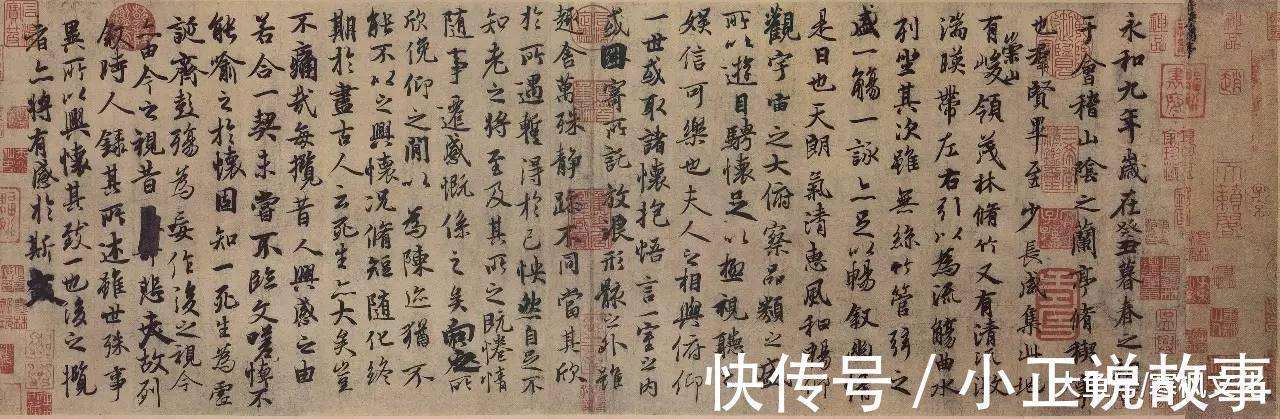 永和九年歲在癸丑暮春之
于會稽山陰之蘭亭脩禊
也羣賢畢至少長咸集此地
有崇山峻領茂林脩竹又有清流激
湍暎帶左右引以為流觴曲水
列坐其次雖無絲竹管弦之
盛一觴一詠亦足以暢敘幽
是日也天朗氣清惠風和暢仰
觀宇宙之大俯察品類之盛
所以遊目騁懷足以極視聽
娛信可樂也夫人之相與俯仰
一世或取諸懷抱悟言一室之內
或因寄所託放浪形骸之外雖
趣舍萬殊静躁不同當其欣
於所遇暫得於己怏然自足不
知老之將至及其所之既惓情
隨事遷感慨係之矣向之所
欣俛仰之閒以為陳迹猶不
能不以之興懷況脩短隨化終
期於盡古人云死生亦大矣豈
不痛哉每攬昔人興感之由
若合一契未嘗不臨文嗟悼不
能喻之於懷固知一死生為虛
誕齊彭殤為妄作後之視今
亦由今之視昔悲夫故列
敘時人錄其所述雖世殊事
異所以興懷其致一也後之攬
者亦將有感於斯文
快传号/小正说故事